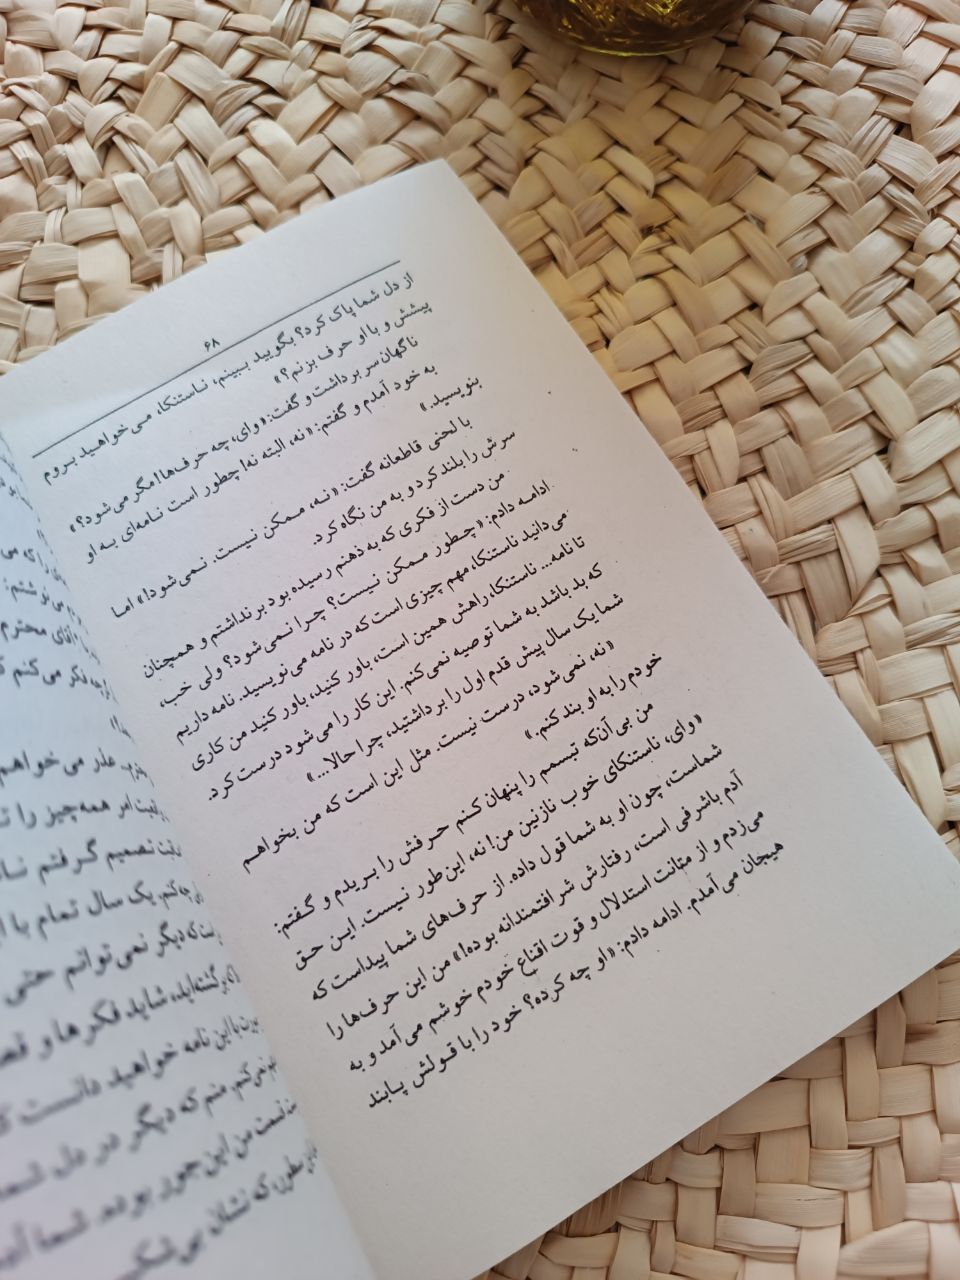 ۶۸
از دل شما پاک کرد؟ بگویید ببینم، ناستنکا، می‌خواهید بروم
پیشش و با او حرف بزنم؟»
ناگهان سر برداشت و گفت: «وای، چه حرف‌ها! مگر می‌شود؟»
به خود آمدم و گفتم: «نه، البته نه! چطور است نامه‌ای به او
بنویسید.»
با لحنی قاطعانه گفت: «نه، ممکن نیست. نمی‌شود!» اما
سرش را بلند کرد و به من نگاه کرد.
من دست از فکری که به ذهنم رسیده بود برنداشتم و همچنان
ادامه دادم: «چطور ممکن نیست؟ چرا نمی‌شود؟ ولی خب،
می‌دانید ناستنکا، مهم چیزی است که در نامه می‌نویسید. نامه داریم
تا نامه... ناستنکا، راهش همین است، باور کنید، باور کنید من کاری
که بد باشد به شما توصیه نمی‌کنم. این کار را می‌شود درست کرد.
شما یک سال پیش قدم اول را برداشتید، چرا حالا...»
«نه، نمی‌شود، درست نیست. مثل این است که من بخواهم
خودم را به او بند کنم.»
من بی آن‌که تبسمم را پنهان کنم حرفش را بریدم و گفتم:
«وای، ناستنکای خوب نازنین من! نه، این‌طور نیست. این حق
شماست، چون او به شما قول داده. از حرف‌های شما پیداست که
آدم باشرفی است، رفتارش شرافتمندانه بوده!» من این حرف‌ها را
می‌زدم و از متانت استدلال و قوت اقناع خودم خوشم می‌آمد و به
هیجان می‌آمدم. ادامه دادم: «او چه کرده؟ خود را با قولش پابند
آقای محترم
فکر می‌کنم
عذر می‌خواهم
همه‌چیز را
تصمیم گرفتم
یک سال تمام با
که دیگر نمی‌توانم حتی
شاید فکرها و
با این نامه خواهید دانست
منم که دیگر در دل
من این جور بوده. شما
که نشان